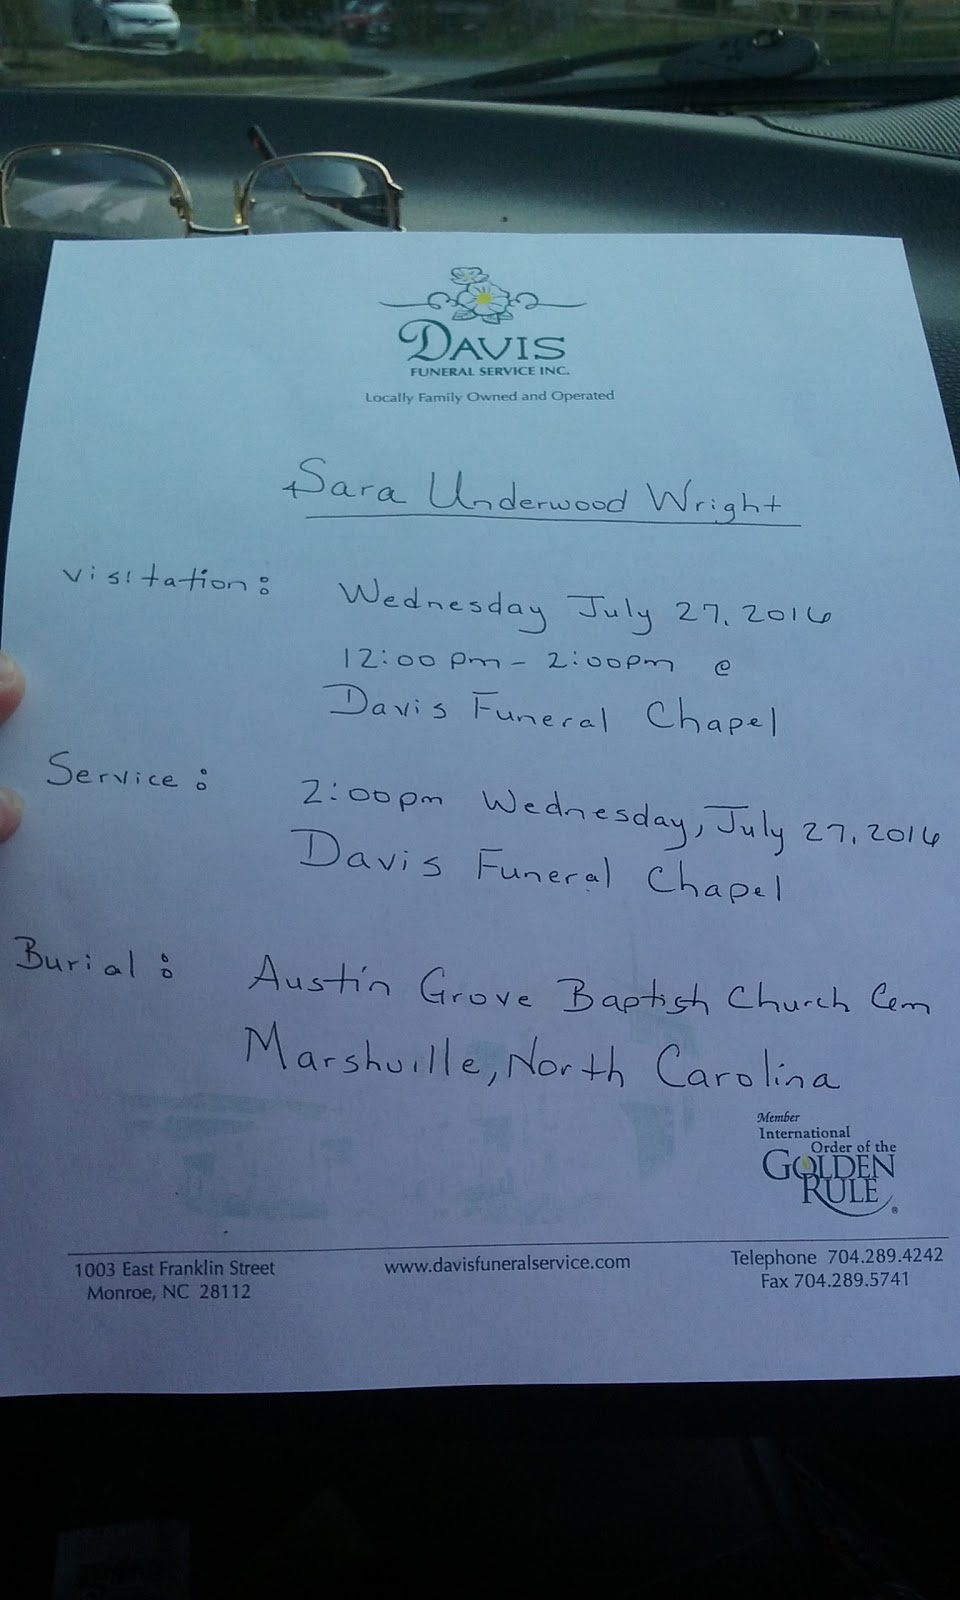 DAVIS
FUNERAL SERVICE INC.
Locally Family Owned and Operated
Sara Underwood Wright
Visitation: Wednesday July 27, 2016
12:00 pm - 2:00pm @
Davis Funeral Chapel
Service: 2:00pm Wednesday, July 27, 2016
Davis Funeral Chapel
Burial: Austin Grove Baptish Church Cem
Marshville, North Carolina
Member
International
Order of the
GOLDEN
RULE ®
1003 East Franklin Street www.davisfuneralservice.com Telephone 704.289.4242
Monroe, NC 28112 Fax 704.289.5741